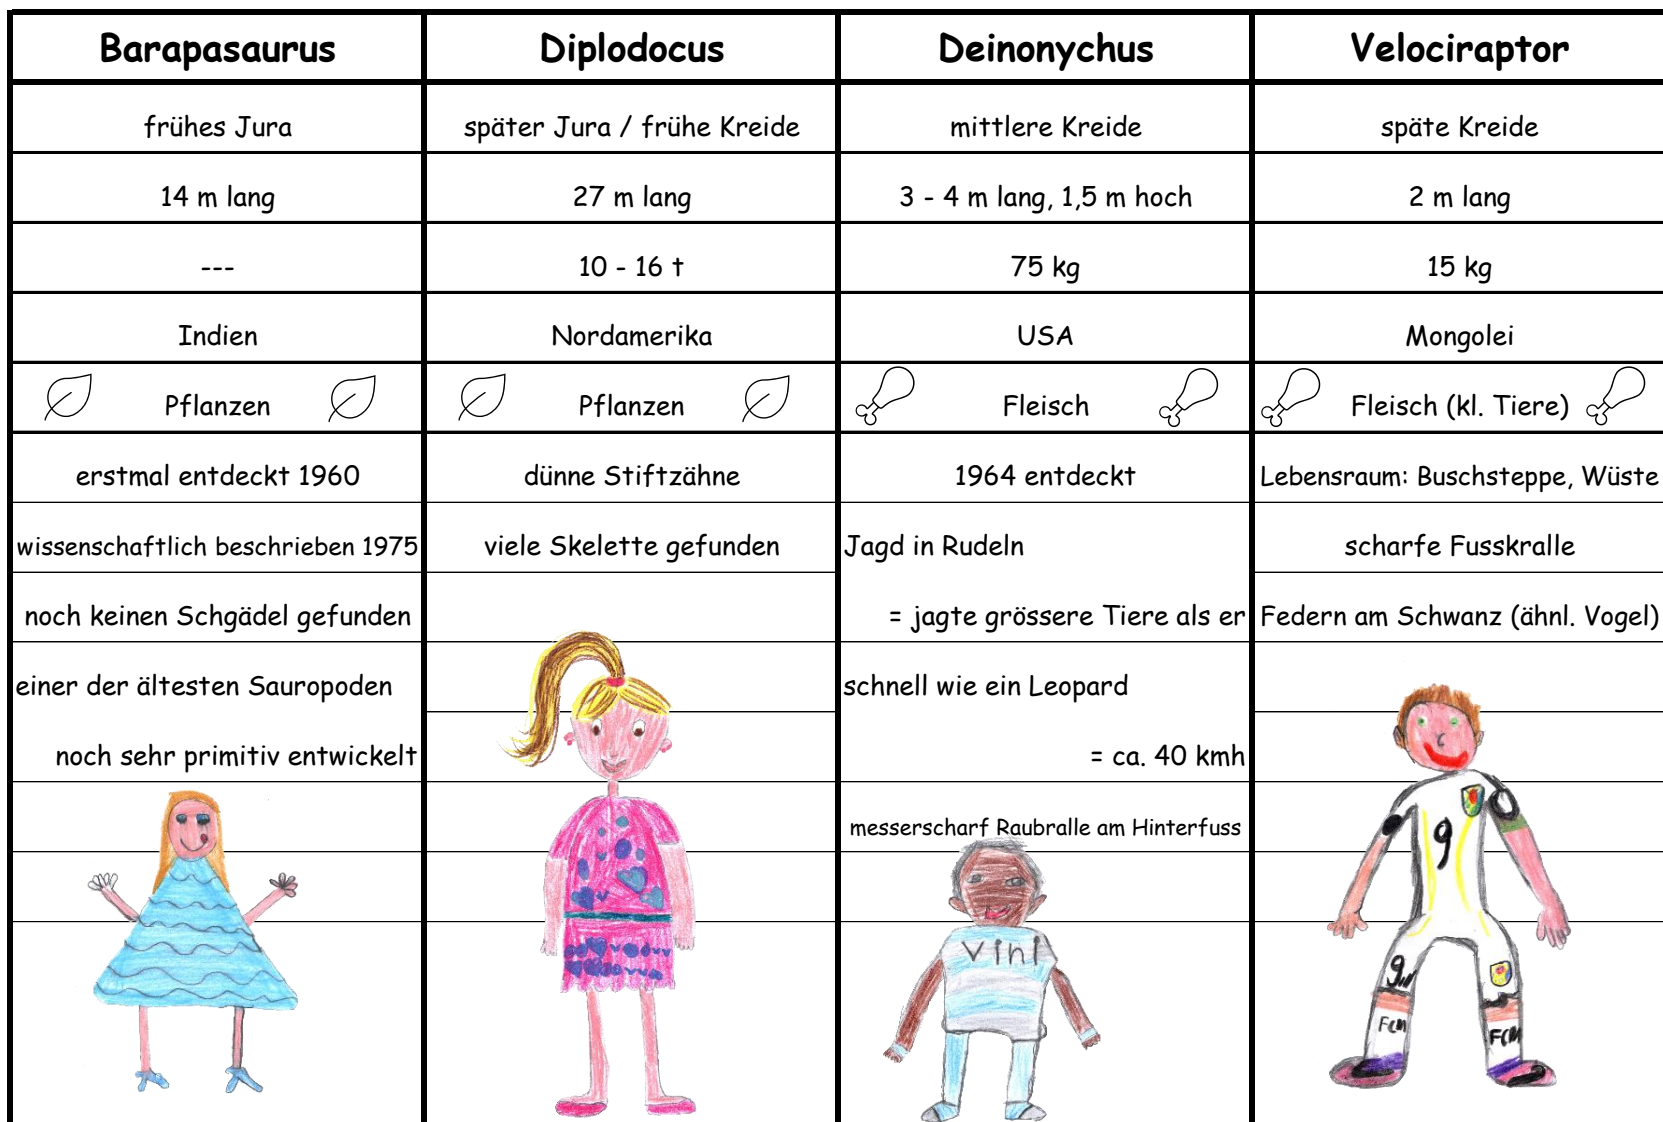 Barapasaurus
Diplodocus
Deinonychus
Velociraptor
frühes Jura
später Jura / frühe Kreide
mittlere Kreide
späte Kreide
14 m lang
27 m lang
3 - 4 m lang, 1,5 m hoch
2 m lang
---
10 - 16 t
75 kg
15 kg
Indien
Nordamerika
USA
Mongolei
Pflanzen
Pflanzen
Fleisch
Fleisch (kl. Tiere)
erstmal entdeckt 1960
dünne Stiftzähne
1964 entdeckt
Lebensraum: Buschsteppe, Wüste
wissenschaftlich beschrieben 1975
viele Skelette gefunden
Jagd in Rudeln
scharfe Fusskralle
noch keinen Schgädel gefunden
= jagte grössere Tiere als er
Federn am Schwanz (ähnl. Vogel)
einer der ältesten Sauropoden
schnell wie ein Leopard
noch sehr primitiv entwickelt
= ca. 40 kmh
messerscharf Raubralle am Hinterfuss
9
Vini
9
FCM
FCM